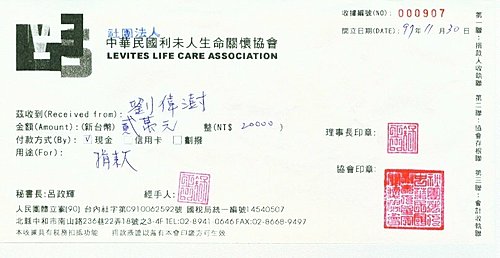 收據編號(NO): 000907
開立日期(DATE): 99年11月30日
社團法人
中華民國利未人生命關懷協會
LEVITES LIFE CARE ASSOCIATION
茲收到(Received from): 劉偉澍
金額(Amount): (新台幣) 貳萬元 整(NT$ 20000)
付款方式(By): V現金 □信用卡 □劃撥
用途(For): 捐款
理事長印章:
協會印章:
秘書長:呂政輝 經手人:
人民團體立案(90) 台內社字第0910062592號 國稅局統一編號14540507
北縣中和市南山路236巷22弄18號之3-4F TEL:02-8941 0646 FAX:02-8668-9497
本收據具有稅務扣抵功能
第一聯:捐款人收執聯
第二聯:協會存根聯
第三聯:會計收執聯